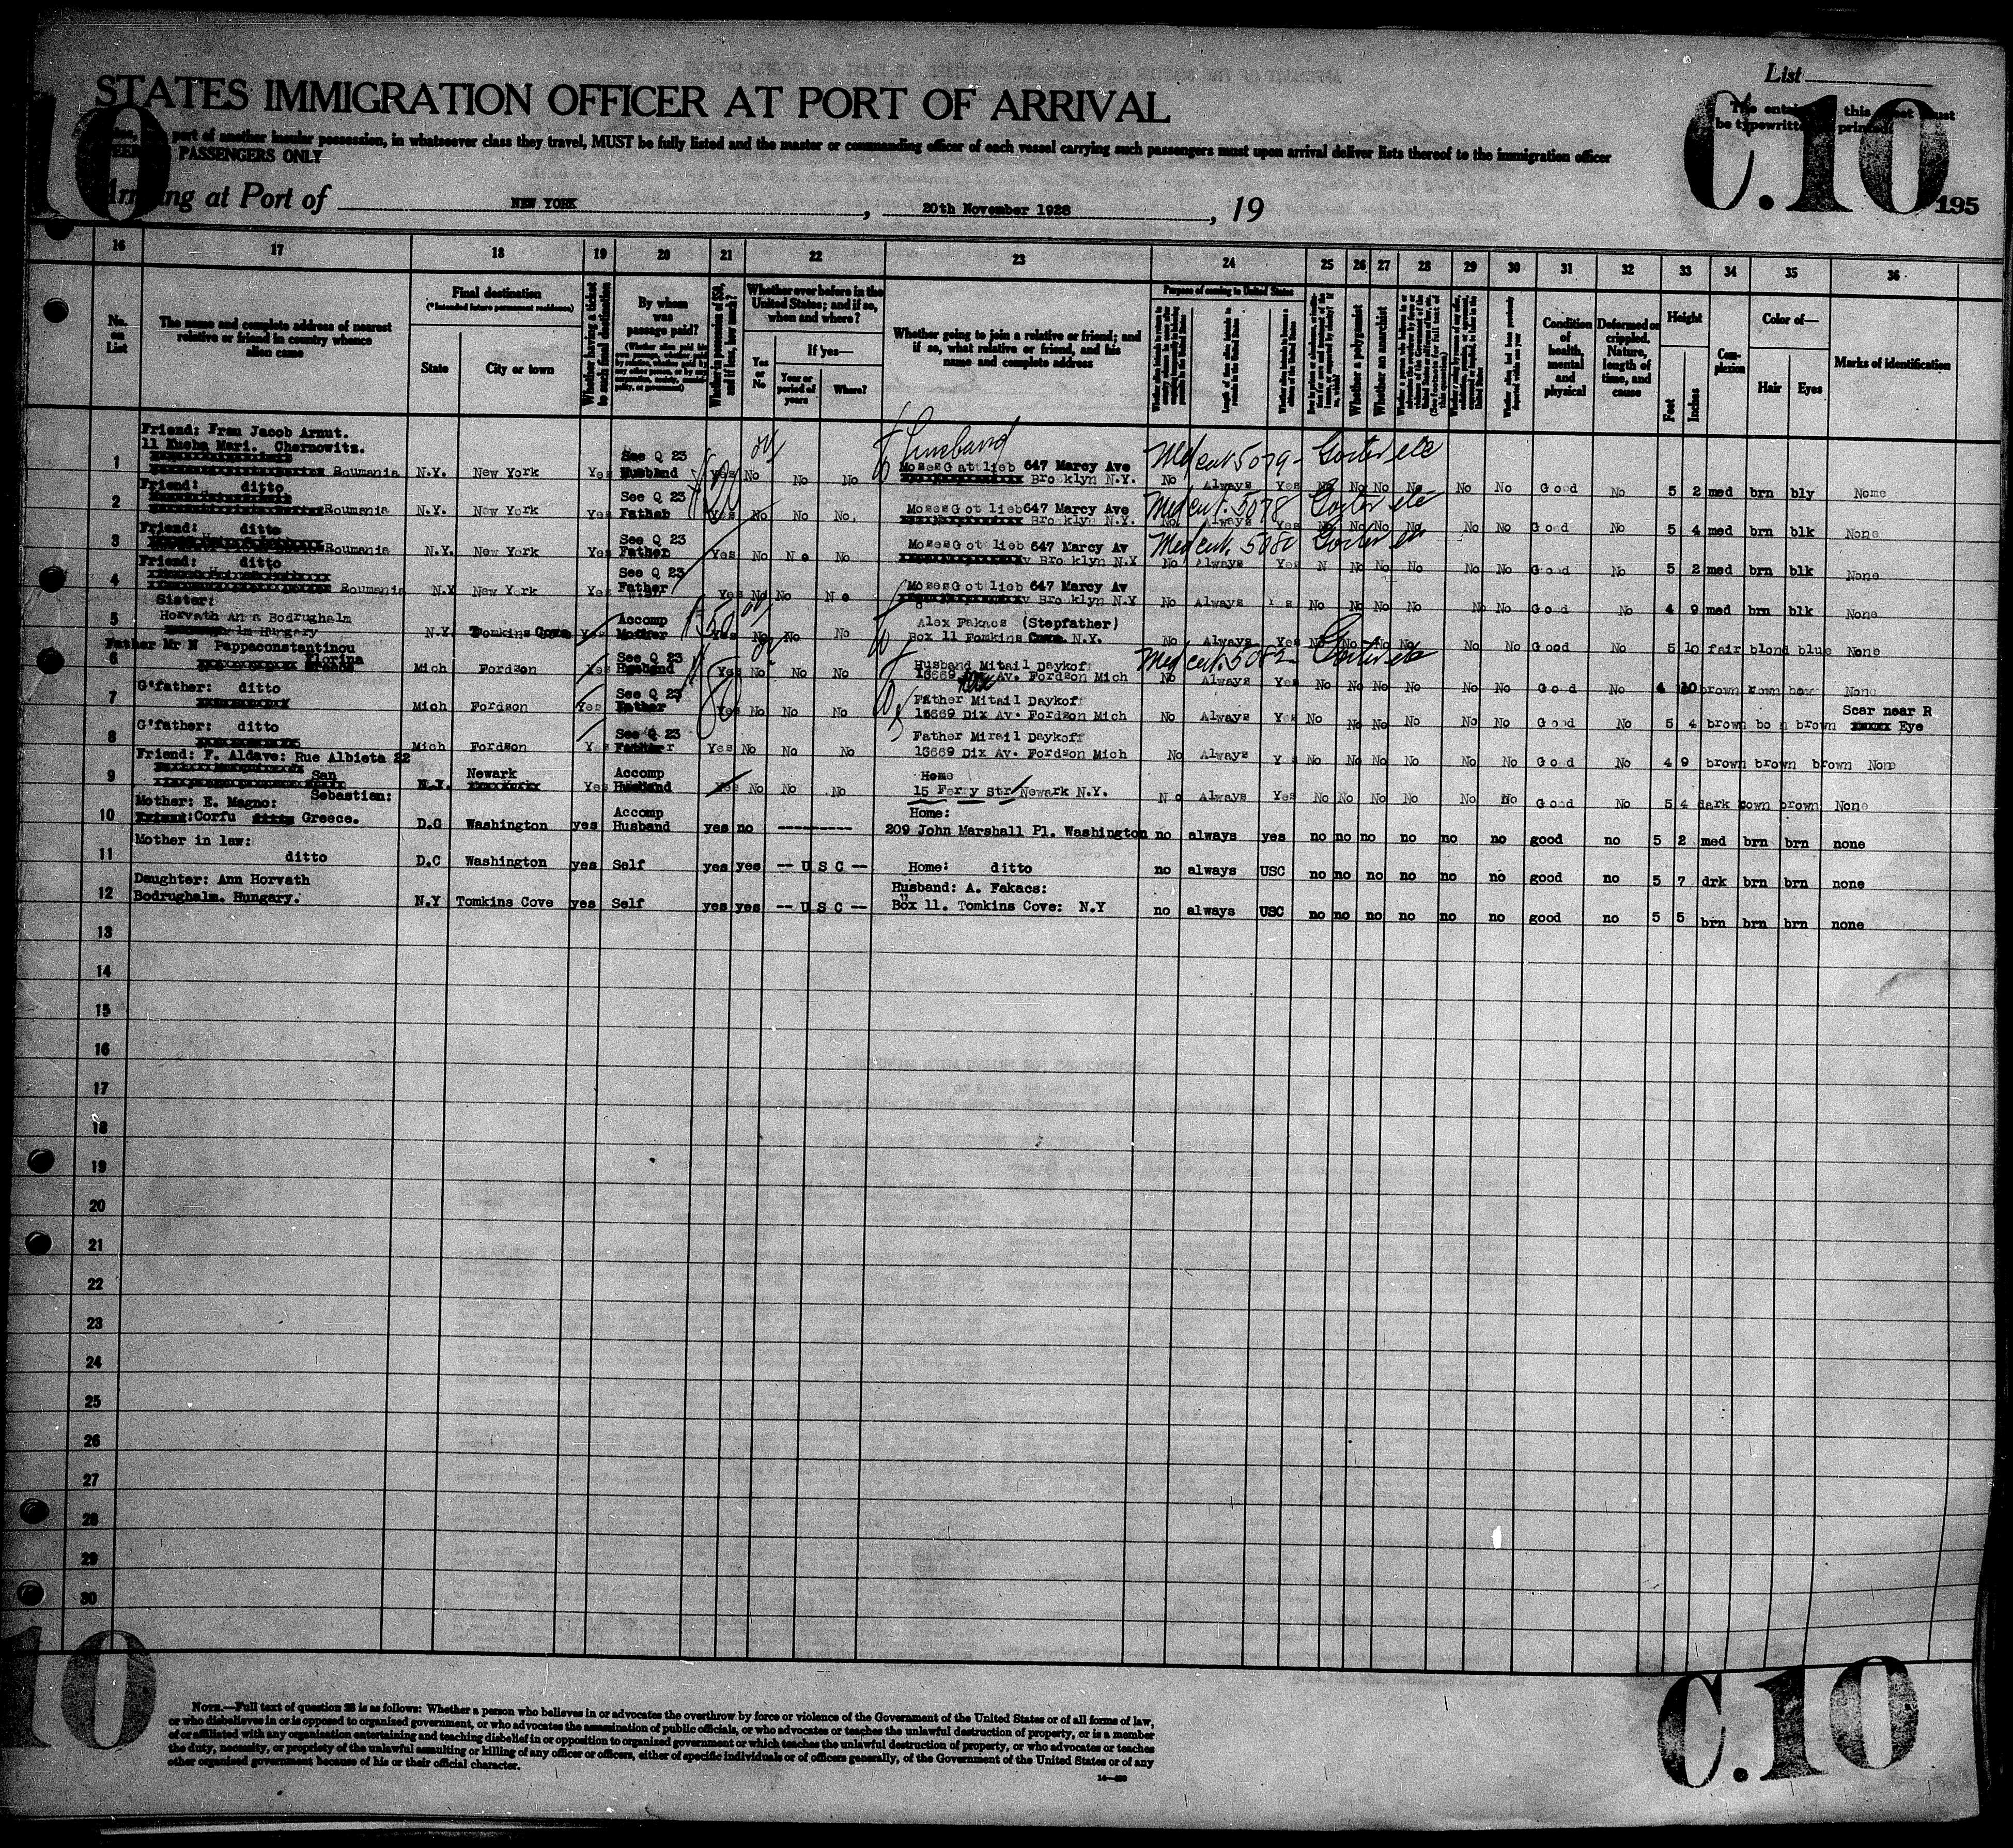 List
STATES IMMIGRATION OFFICER AT PORT OF ARRIVAL
The entries this sheet must
be typewritten printed.
part of another insular possession, in whatsoever class they travel, MUST be fully listed and the master or commanding officer of each vessel carrying such passengers must upon arrival deliver lists thereof to the immigration officer
PASSENGERS ONLY
10
C.10
195
Arriving at Port of NEW YORK , 20th November 1928 , 19
16 17 18 19 20 21 22 23 24 25 26 27 28 29 30 31 32 33 34 35 36
No. on List
The name and complete address of nearest relative or friend in country whence alien came
Final destination
(*Intended future permanent residence)
State
City or town
Whether having a ticket to such final destination
By whom was passage paid?
Whether in possession of $50, and if less, how much?
Whether ever before in the United States; and if so, when and where?
Yes or No
If yes—
Year or period of years
Where?
Whether going to join a relative or friend; and if so, what relative or friend, and his name and complete address
Purpose of coming to United States
Length of time alien intends to remain in the United States
Whether a polygamist
Whether an anarchist
Condition of health, mental and physical
Deformed or crippled. Nature, length of time, and cause
Height
Feet
Inches
Complexion
Color of—
Hair
Eyes
Marks of identification
Friend: Frau Jacob Arnut.
11 Kucha Mari. Chernowitz.
1 Roumania N.Y. New York Yes See Q 23 Husband Yes No No No Husband Moses Gottlieb 647 Marcy Ave Brooklyn N.Y. Med cert 5079 - Goiter etc No Always Yes No No No No No No Good No 5 2 med brn bly None
Friend: ditto
2 Roumania N.Y. New York Yes See Q 23 Father Yes No No No. Moses Gottlieb 647 Marcy Ave Brooklyn N.Y. Med cert. 5078 Goiter etc No Always Yes No No No No No No Good No 5 4 med brn blk None
Friend: ditto
3 Roumania N.Y. New York Yes See Q 23 Father Yes No No No Moses Gottlieb 647 Marcy Av Brooklyn N.Y Med cert. 5080 Goiter etc No Always Yes N No No No No No Good No 5 2 med brn blk None
Friend: ditto
4 Roumania N.Y New York Yes See Q 23 Father Yes No No No Moses Gottlieb 647 Marcy Av Brooklyn N.Y No Always Yes No No No No No No Good No 4 9 med brn blk None
Sister:
Horvath Anna Bodrughalm
5 Hungary N.Y. Tomkins Cove Yes Accomp Mother Yes No No No Alex Fakacs (Stepfather) Box 11 Tomkins Cove N.Y. No Always Yes No No No No No No Good No 5 10 fair blond blue None
Father Mr N Pappaconstantinou
6 Florina Mich Fordson Yes See Q 23 Husband Yes No No No Husband Mitail Daykoff 16669 Av. Fordson Mich Med cert. 5082 - Goiter etc No Always Yes No No No No No No Good No 4 10 brown brown brown None
7 G'father: ditto Mich Fordson Yes See Q 23 Father Yes No No No Father Mitail Daykoff 16669 Dix Av. Fordson Mich No Always Yes No No No No No No Good No 5 4 brown brown brown Scar near R Eye
8 G'father: ditto Mich Fordson Yes See Q 23 Father Yes No No No Father Mirail Daykoff 16669 Dix Av. Fordson Mich No Always Yes No No No No No No Good No 4 9 brown brown brown None
Friend: F. Aldave: Rue Albieta 22
9 San Sebastian: Newark Yes Accomp Husband Yes No No No Home 15 Ferry Str Newark N.Y. No Always Yes No No No No No No Good No 5 4 dark brown brown None
Mother: E. Magno:
10 Corfu Greece. D.C Washington yes Accomp Husband yes no Home: 209 John Marshall Pl. Washington no always yes no no no no no no good no 5 2 med brn brn none
Mother in law:
11 ditto D.C Washington yes Self yes yes -- U S C -- Home: ditto no always USC no no no no no no good no 5 7 drk brn brn none
Daughter: Ann Horvath
12 Bodrughalm. Hungary. N.Y Tomkins Cove yes Self yes yes -- U S C -- Husband: A. Fakacs: Box 11. Tomkins Cove: N.Y no always USC no no no no no no good no 5 5 brn brn brn none
13
14
15
16
17
18
19
20
21
22
23
24
25
26
27
28
29
30
10
C.10
NOTE.—Full text of question 28 is as follows: Whether a person who believes in or advocates the overthrow by force or violence of the Government of the United States or of all forms of law,
or who disbelieves in or is opposed to organized government, or who advocates the assassination of public officials, or who advocates or teaches the unlawful destruction of property, or is a member
of or affiliated with any organization entertaining and teaching disbelief in or opposition to organized government or which teaches the unlawful destruction of property, or who advocates or teaches
the duty, necessity, or propriety of the unlawful assaulting or killing of any officer or officers, either of specific individuals or of officers generally, of the Government of the United States or of any
other organized government because of his or their official character.